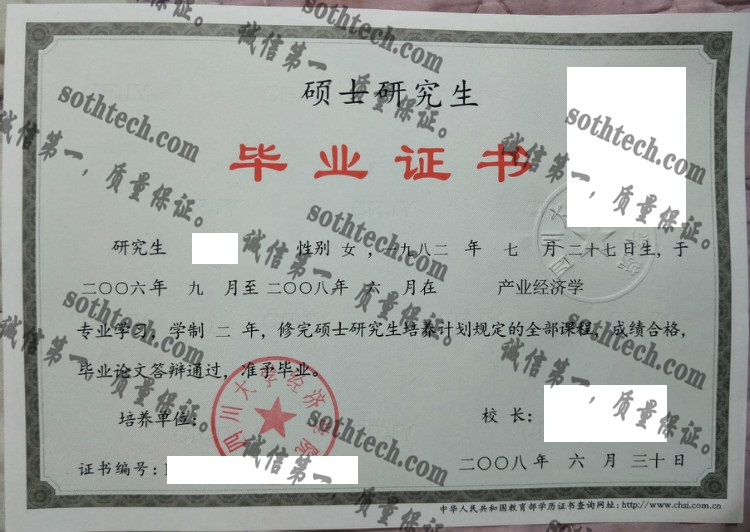 硕士研究生
毕业证书
研究生 性别 女，一九八二 年 七 月 二十七日生，于
二〇〇六年 九 月至 二〇〇八年 六 月在 产业经济学
专业学习，学制 二 年，修完硕士研究生培养计划规定的全部课程，成绩合格，
毕业论文答辩通过，准予毕业。
四川大学经济学院
培养单位：
校 长：
证书编号：
二〇〇八年 六 月 三十日
中华人民共和国教育部学历证书查询网址：http://www.chsi.com.cn
sothtech.com
诚信第一，质量保证。
sothtech.com
诚信第一，质量保证。
sothtech.com
诚信第一，质量保证。
sothtech.com
诚信第一，质量保证。
sothtech.com
诚信第一，质量保证。
sothtech.com
诚信第一，质量保证。
sothtech.com
诚信第一，质量保证。
sothtech.com
诚信第一，质量保证。